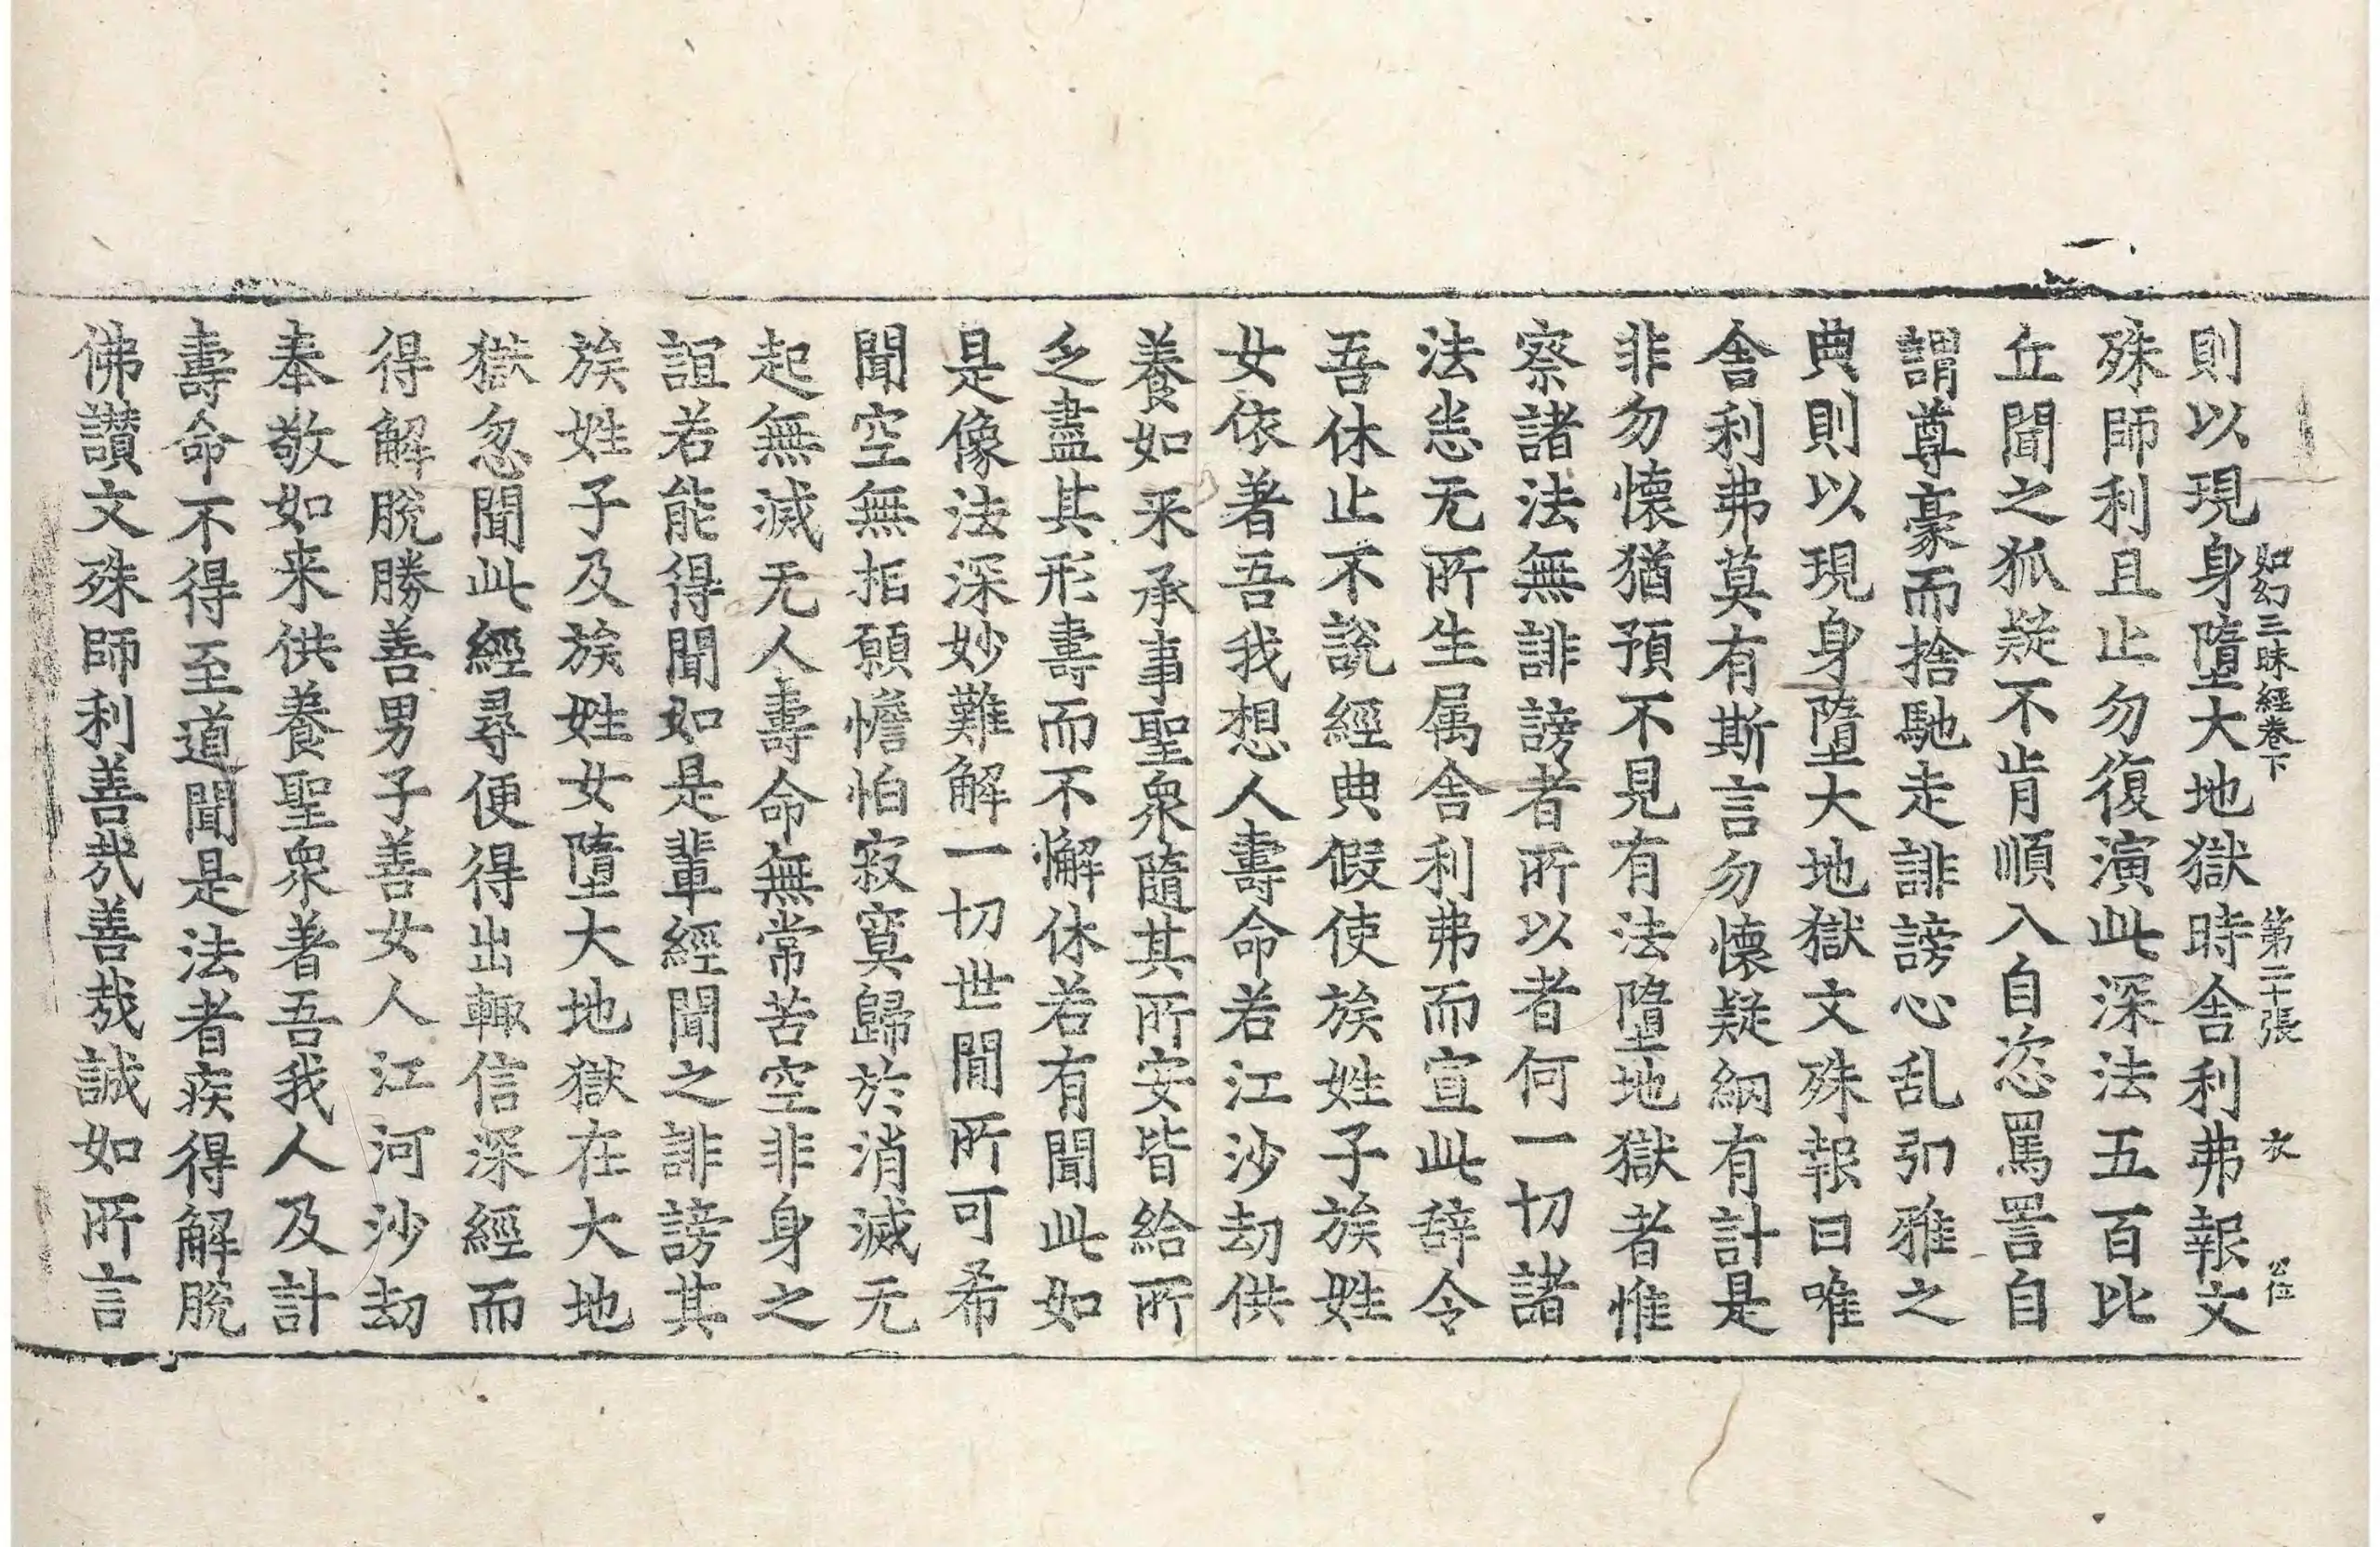 如幻三昧經卷下 第二十張 衣 公位
則以現身墮大地獄時舎利弗報文
殊師利且止勿復演此深法五百比
丘聞之狐疑不肯順入自恣罵詈自
謂尊豪而捨馳走誹謗心乱引雅之
典則以現身墮大地獄文殊報曰唯
舎利弗莫有斯言勿懷疑網有計是
非勿懷猶預不見有法墮地獄者惟
察諸法無誹謗者所以者何一切諸
法恙无所生属舎利弗而宣此辞令
吾休止不說經典假使族姓子族姓
女依著吾我想人壽命若江沙劫供
養如来承事聖衆隨其所安皆給所
乏盡其形壽而不懈休若有聞此如
是像法深妙難解一切世間所可希
聞空無相願憺怕寂寞歸於消滅无
起無滅无人壽命無常苦空非身之
誼若能得聞如是輩經聞之誹謗其
族姓子及族姓女墮大地獄在大地
獄忽聞此經尋便得出輙信深經而
得解脫勝善男子善女人江河沙劫
奉敬如来供養聖衆著吾我人及計
壽命不得至道聞是法者疾得解脫
佛讃文殊師利善哉善哉誠如所言